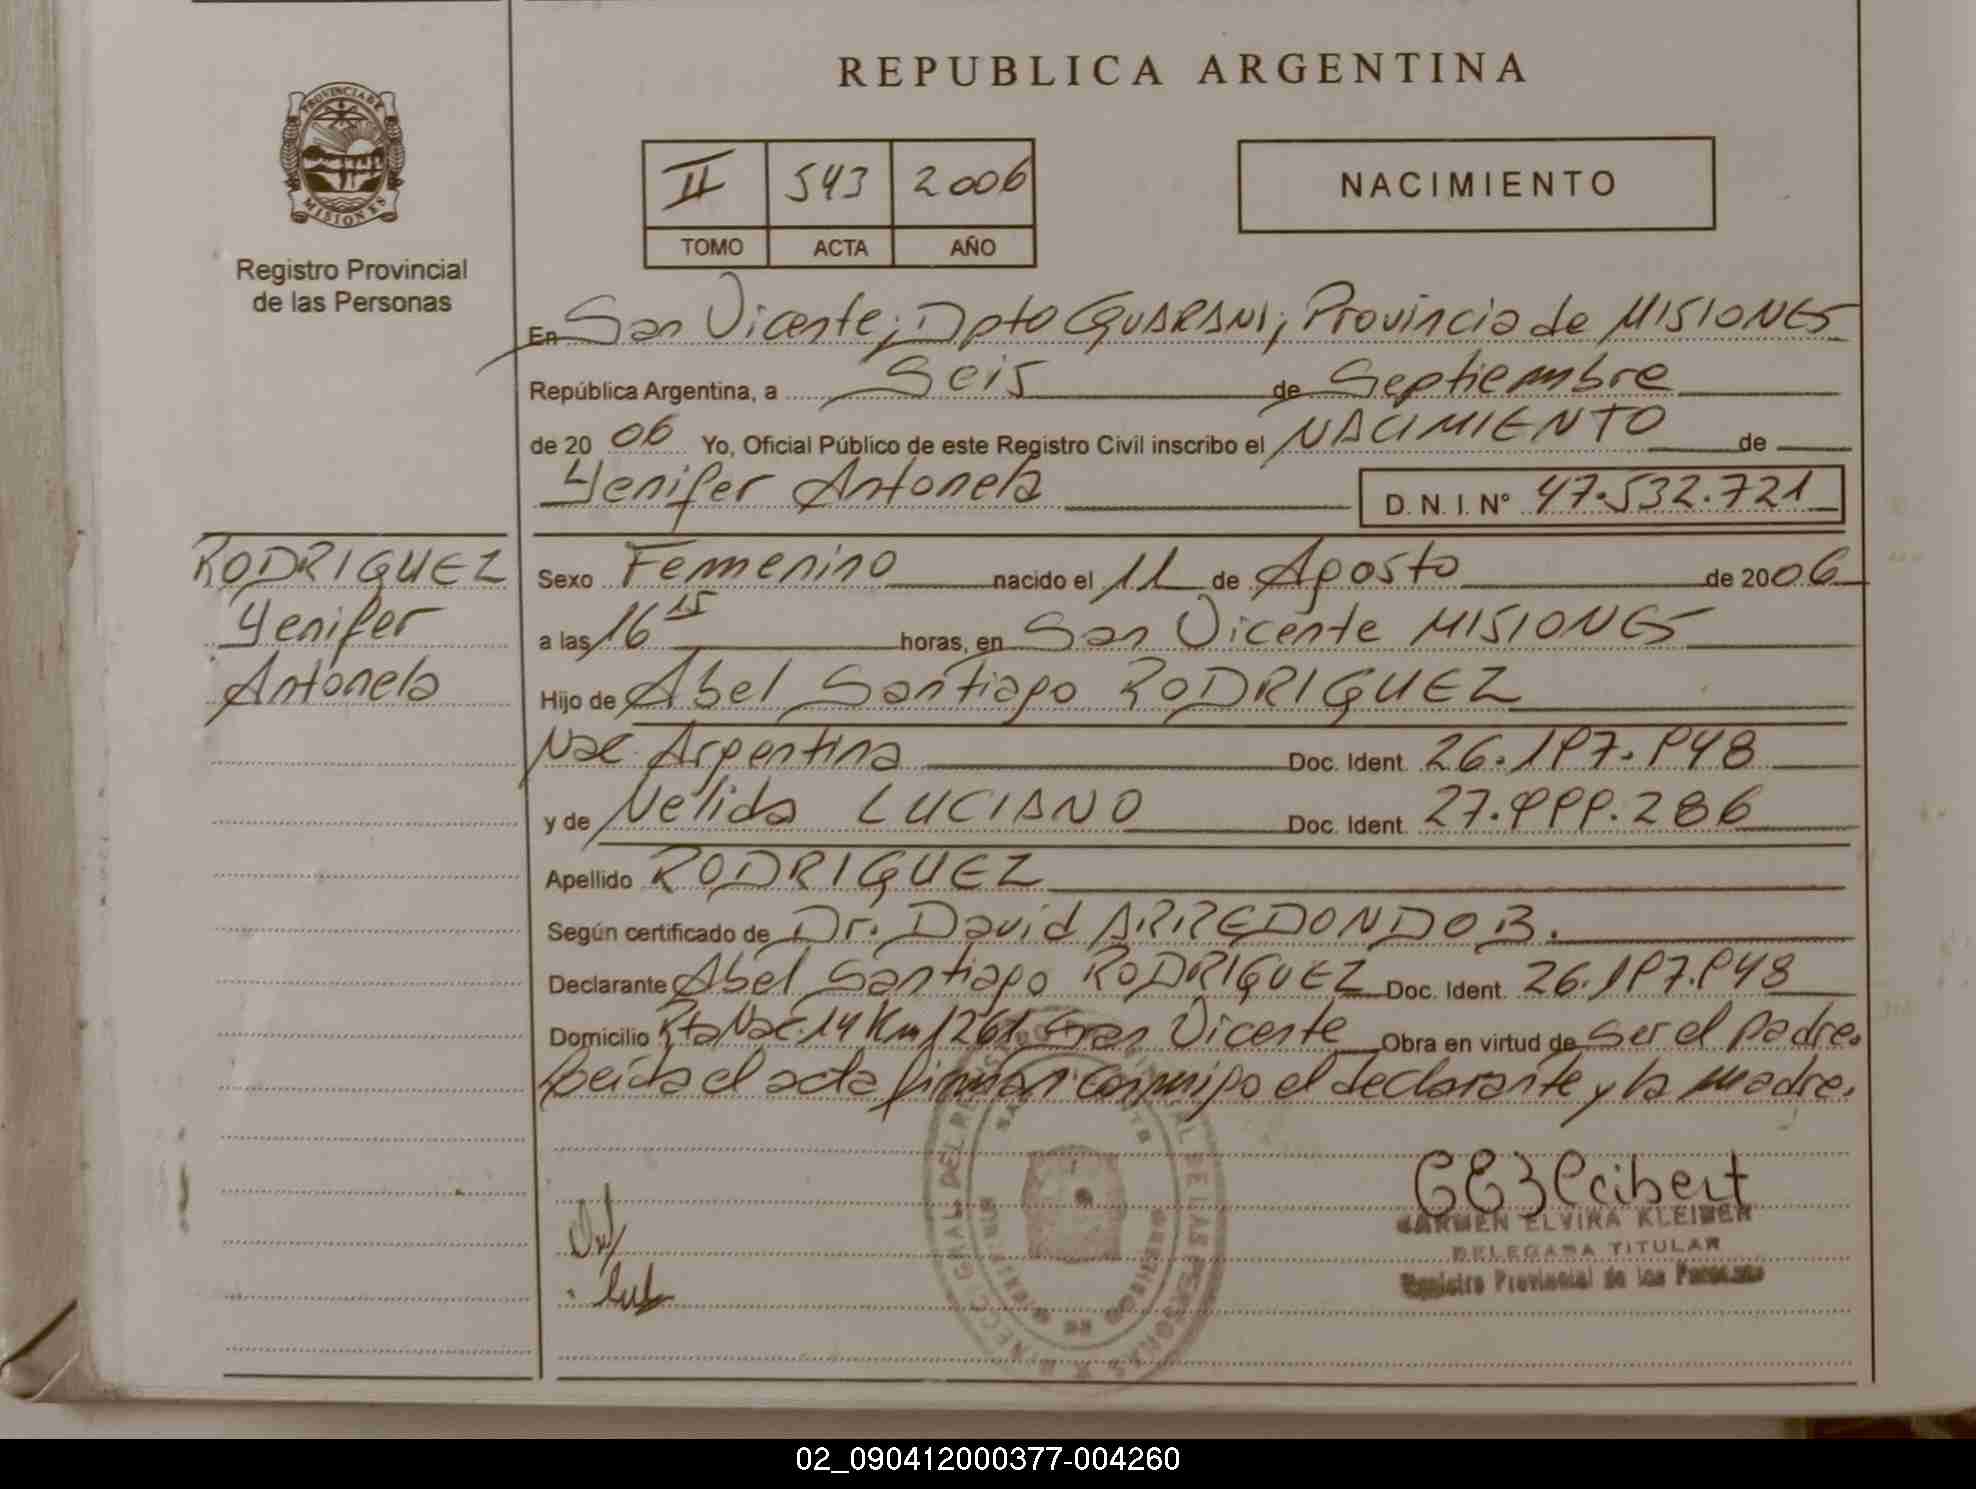 REPUBLICA ARGENTINA
PROVINCIA DE
MISIONES
Registro Provincial
de las Personas
II 543 2006
TOMO ACTA AÑO
NACIMIENTO
En San Vicente; Dpto GUARANI; Provincia de MISIONES
República Argentina, a Seis de Septiembre
de 20 06 Yo, Oficial Público de este Registro Civil inscribo el NACIMIENTO de
Yenifer Antonela D. N. I. Nº 47.532.721
RODRIGUEZ
Yenifer
Antonela
Sexo Femenino nacido el 11 de Agosto de 2006
a las 16 15 horas, en San Vicente MISIONES
Hijo de Abel Santiago RODRIGUEZ
Nac. Argentina Doc. Ident. 26.197.948
y de Nélida LUCIANO Doc. Ident. 27.999.286
Apellido RODRIGUEZ
Según certificado de Dr. David ARREDONDO B.
Declarante Abel Santiago RODRIGUEZ Doc. Ident. 26.197.948
Domicilio Rta Nac. 14 Km 1261 San Vicente Obra en virtud de ser el padre.
Leída el acta firman conmigo el declarante y la madre.
CARMEN ELVIRA
DELEGADA TITULAR
Registro Provincial de las Personas
02_090412000377-004260